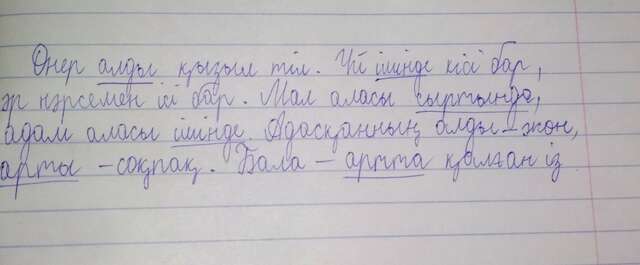 Өнер алды қызыл тіл. Үй ішінде кісі бар,
әр нәрсемен ісі бар. Мал аласы сыртында,
адам аласы ішінде. Адасқанның алды – жөн,
арты – соқпақ. Бала – артта қалған із